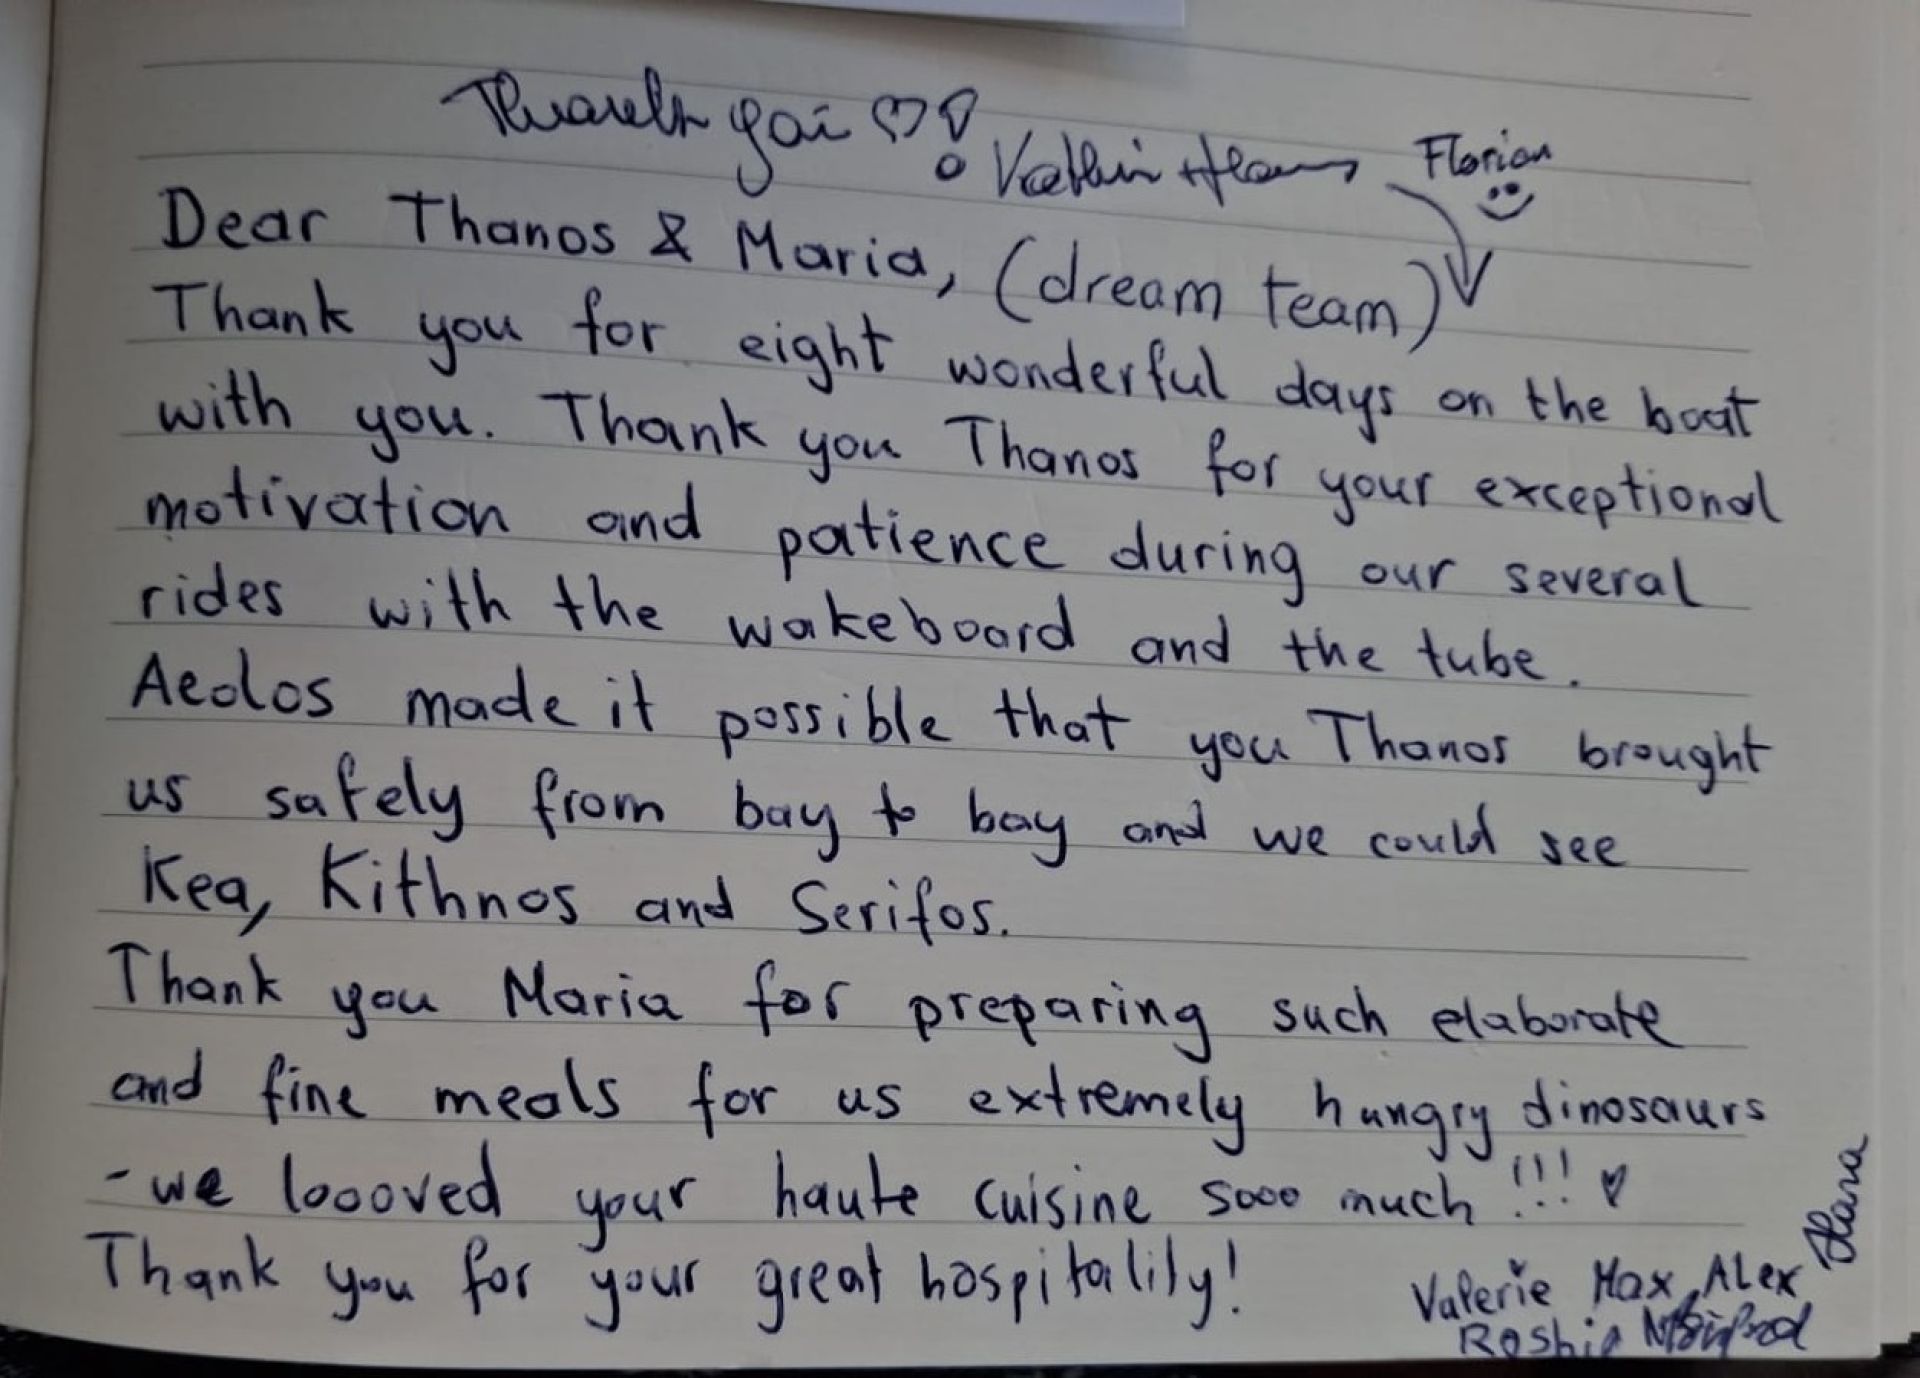 Thank you ♡!
Florian
Dear Thanos & Maria, (dream team)
Thank you for eight wonderful days on the boat
with you. Thank you Thanos for your exceptional
motivation and patience during our several
rides with the wakeboard and the tube.
Aeolos made it possible that you Thanos brought
us safely from bay to bay and we could see
Kea, Kithnos and Serifos.
Thank you Maria for preparing such elaborate
and fine meals for us extremely hungry dinosaurs
- we loooved your haute cuisine sooo much !!! ♡
Thank you for your great hospitality!
Valerie Max, Alex